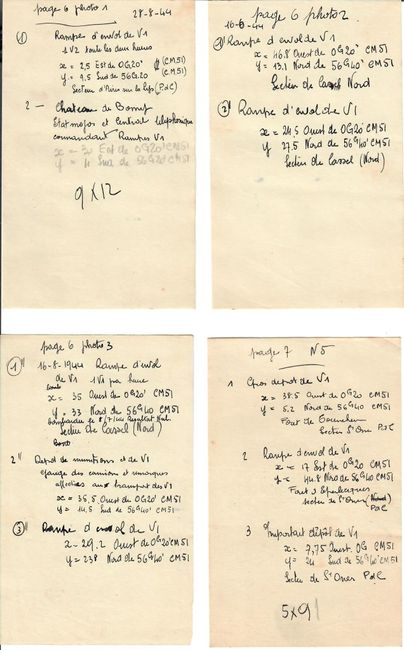 page 6 photo 1
28-8-44
① Rampe d'envol de V1
1 V2 toute les deux heures
x = 2,5 Est de 0G20' (CM51)
y = 9,5 Sud de 56G20 (CM51)
Secteur d'Aire sur la Lys (PdC)
2 - Chateau de Bomy
Etat major et Central téléphonique
commandant Rampes V1
x = 30 Est de 0G20' CM51
y = 4 Sud de 56G20 CM51
9 X 12
page 6 photo 2
16-8-44
Rampe d'envol de V1
x = 46.8 Ouest de 0G20' CM51
y = 13.1 Nord de 56G40 CM51
Secteur de Cassel Nord
Rampe d'envol de V1
x = 24.5 Ouest de 0G20' CM51
y 27.5 Nord de 56G40 CM51
Secteur de Cassel (Nord)
page 6 photo 3
1" 16-8-1944 Rampe d'envol
de V1 1 V1 par heure
x = 35 Ouest de 0G20' CM51
y = 33 Nord de 56G40 CM51
Secteur de Cassel (Nord)
2" Depot de munitions et de V1
garage des camions et remorques
affectées aux transport des V1
x = 35,5 Ouest de 0G20' CM51
y = 14,5 Sud de 56G40' CM51
3" Rampe d'envol de V1
x = 29.2 Ouest de 0G20' CM51
y = 23.8 Nord de 56G40 CM51
page 7 N5
1 Gros depot de V1
x = 38.5 Ouest de 0G20' CM51
y = 5.2 Nord de 56G40 CM51
Foret de
Secteur St Omer PdC
2 Rampe d'envol de V1
x = 17 Est de 0G20' CM51
y = 44.8 Nord de 56G40 CM51
Foret d'Eperlecques
secteur de St Omer PdC
3 Important dépôt de V1
x = 7,75 Ouest 0G CM51
y = 24 Sud de 56G40 CM51
Secteur de St Omer PdC
5x9